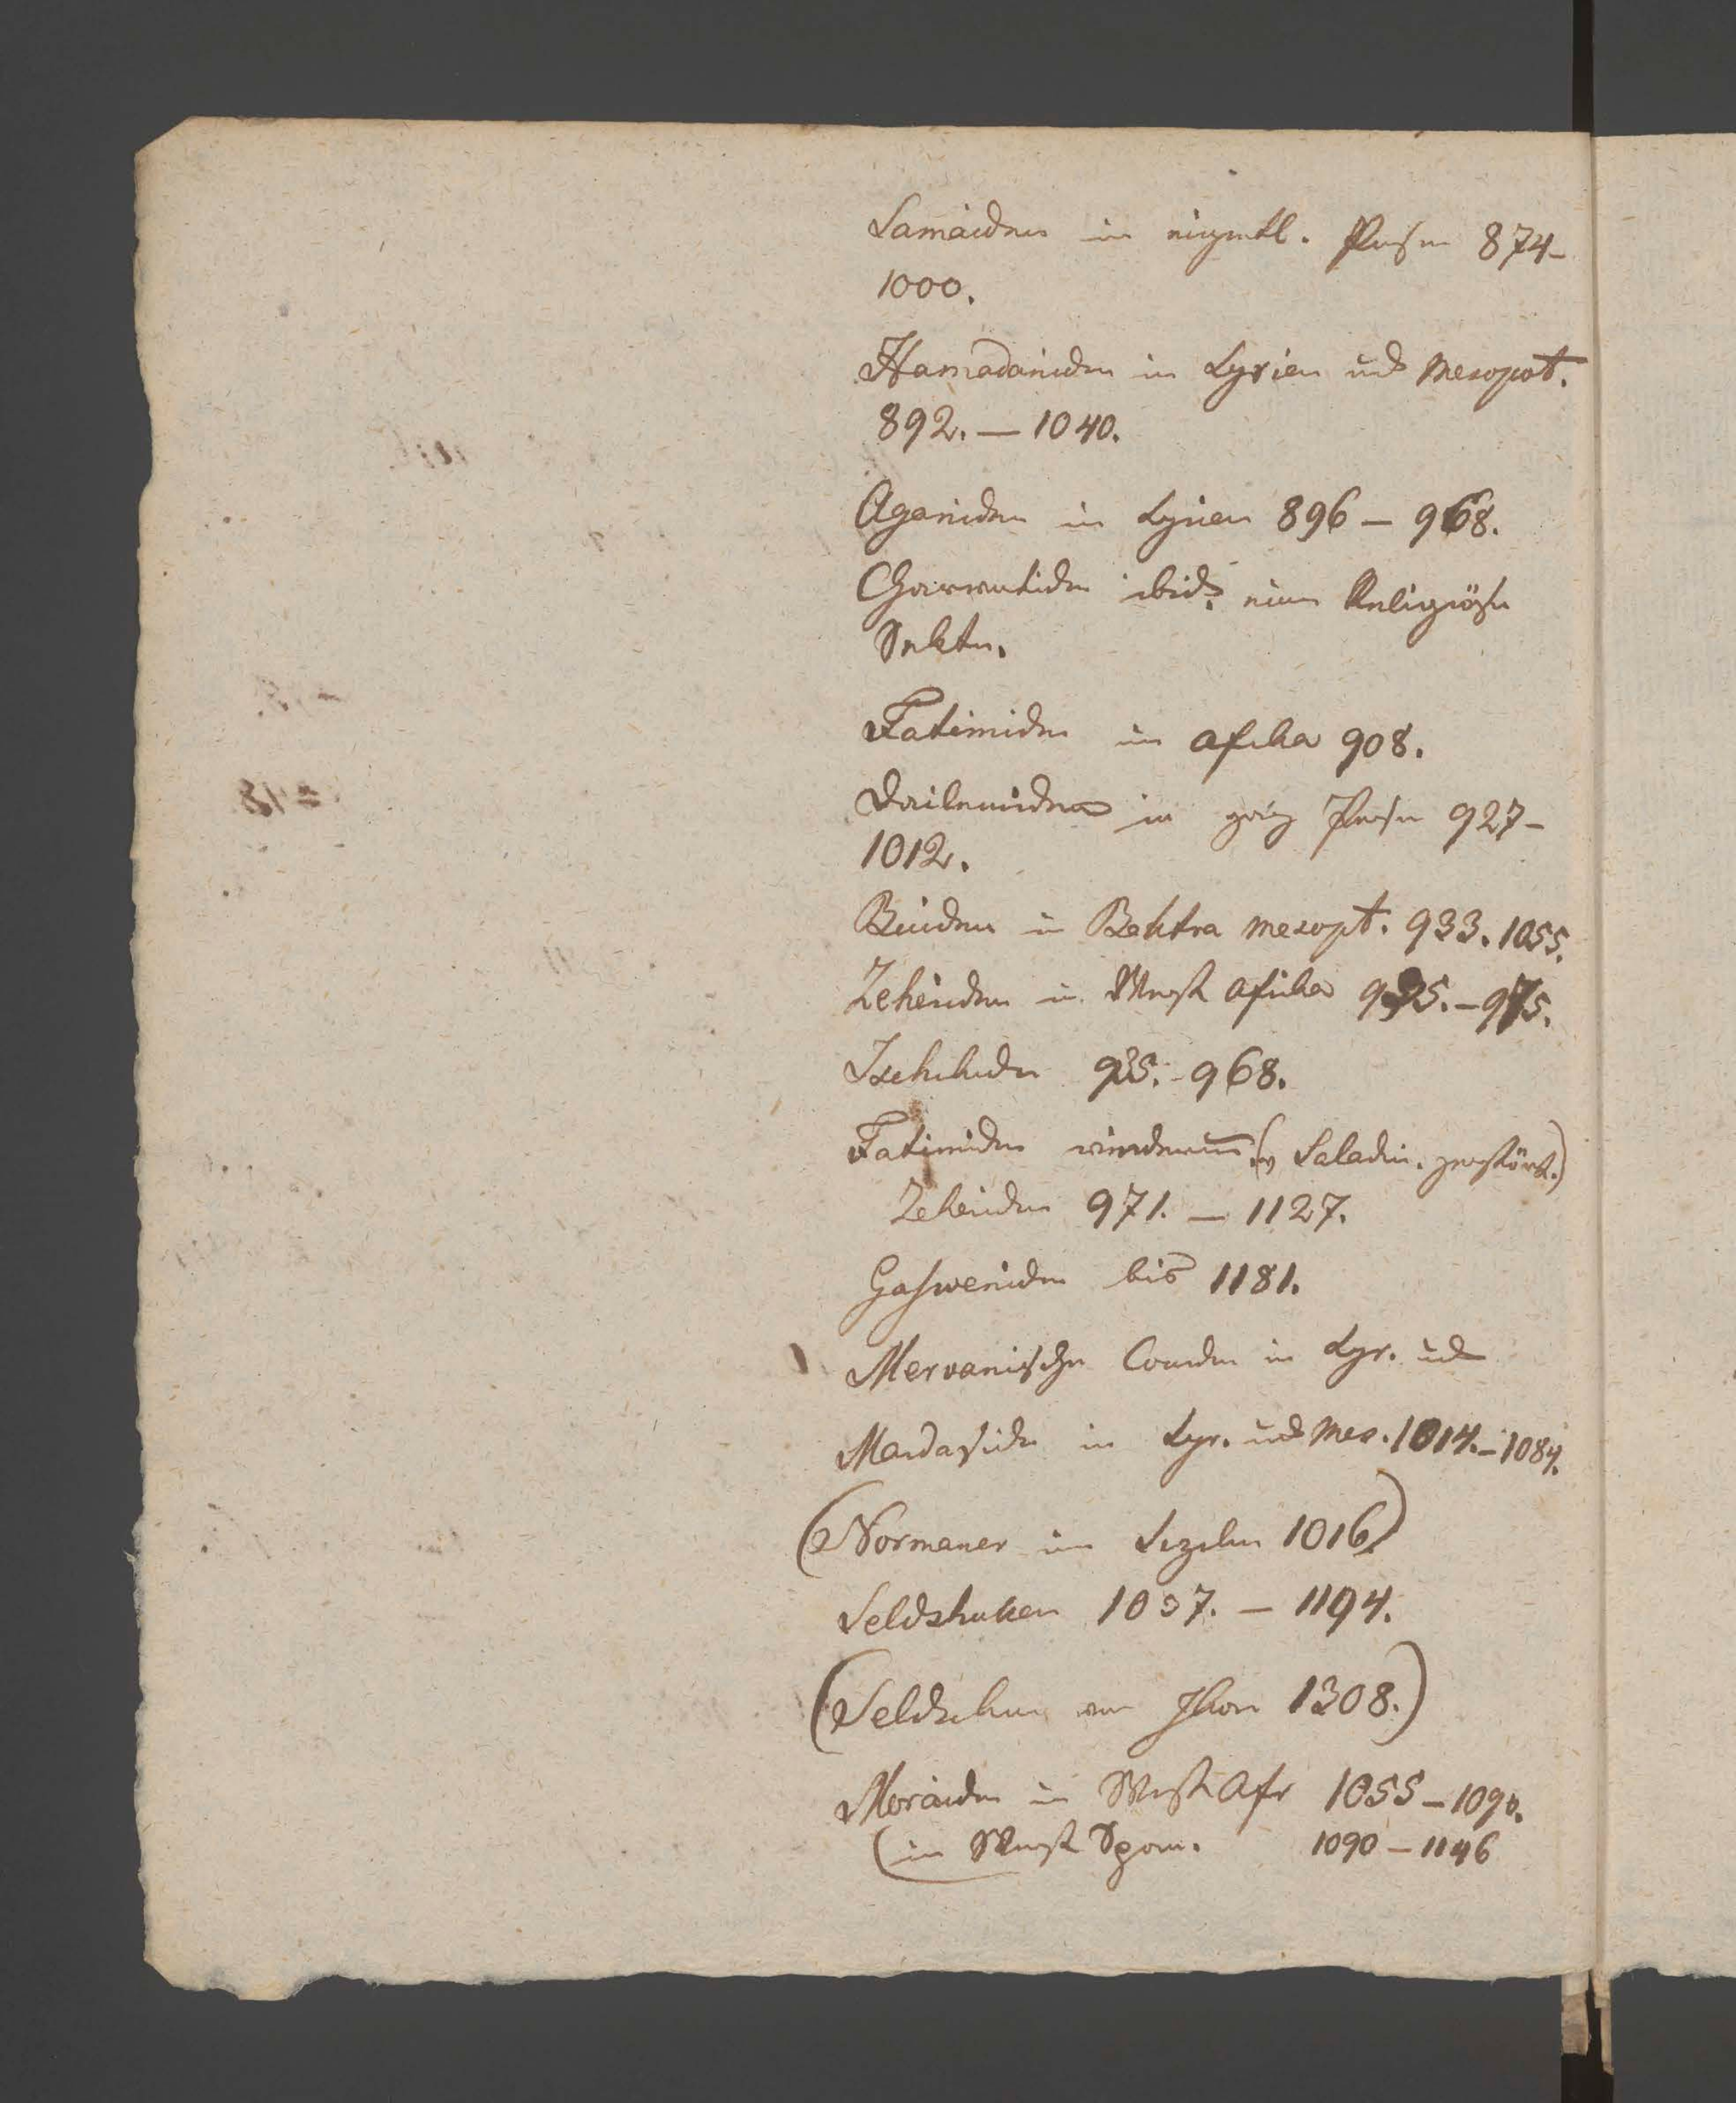 Samaiden in eigentl. Persien 874–
1000.
Hamadaniden in Syrien und Mesopot.
892. — 1040.
Aganiden in Syrien 896 – 968.
ibid. eine Religiöse
Sekte.
Fatimiden in Afrika 908.
Dailemiden in ganz Persien 927–
1012.
Buiden in Baktra Mesopt. 933. 1055.
Zeheiriden in West Afrika – 975.
968.
Fatimiden wiederum (v Saladin. zerstört.)
Zeheiriden 971. — 1127.
Gasweniden bis 1181.
Mervanische in Syr. und
Mardasiden in Syr. und Mes. 1014. – 1084.
(Normaner in Sizilien 1016)
Seldshuken 1037. — 1194.
(Seldschuken von Ikon 1308.)
Moraiden in West Afr 1055 – 1090.
(in West Span. 1090 – 1146